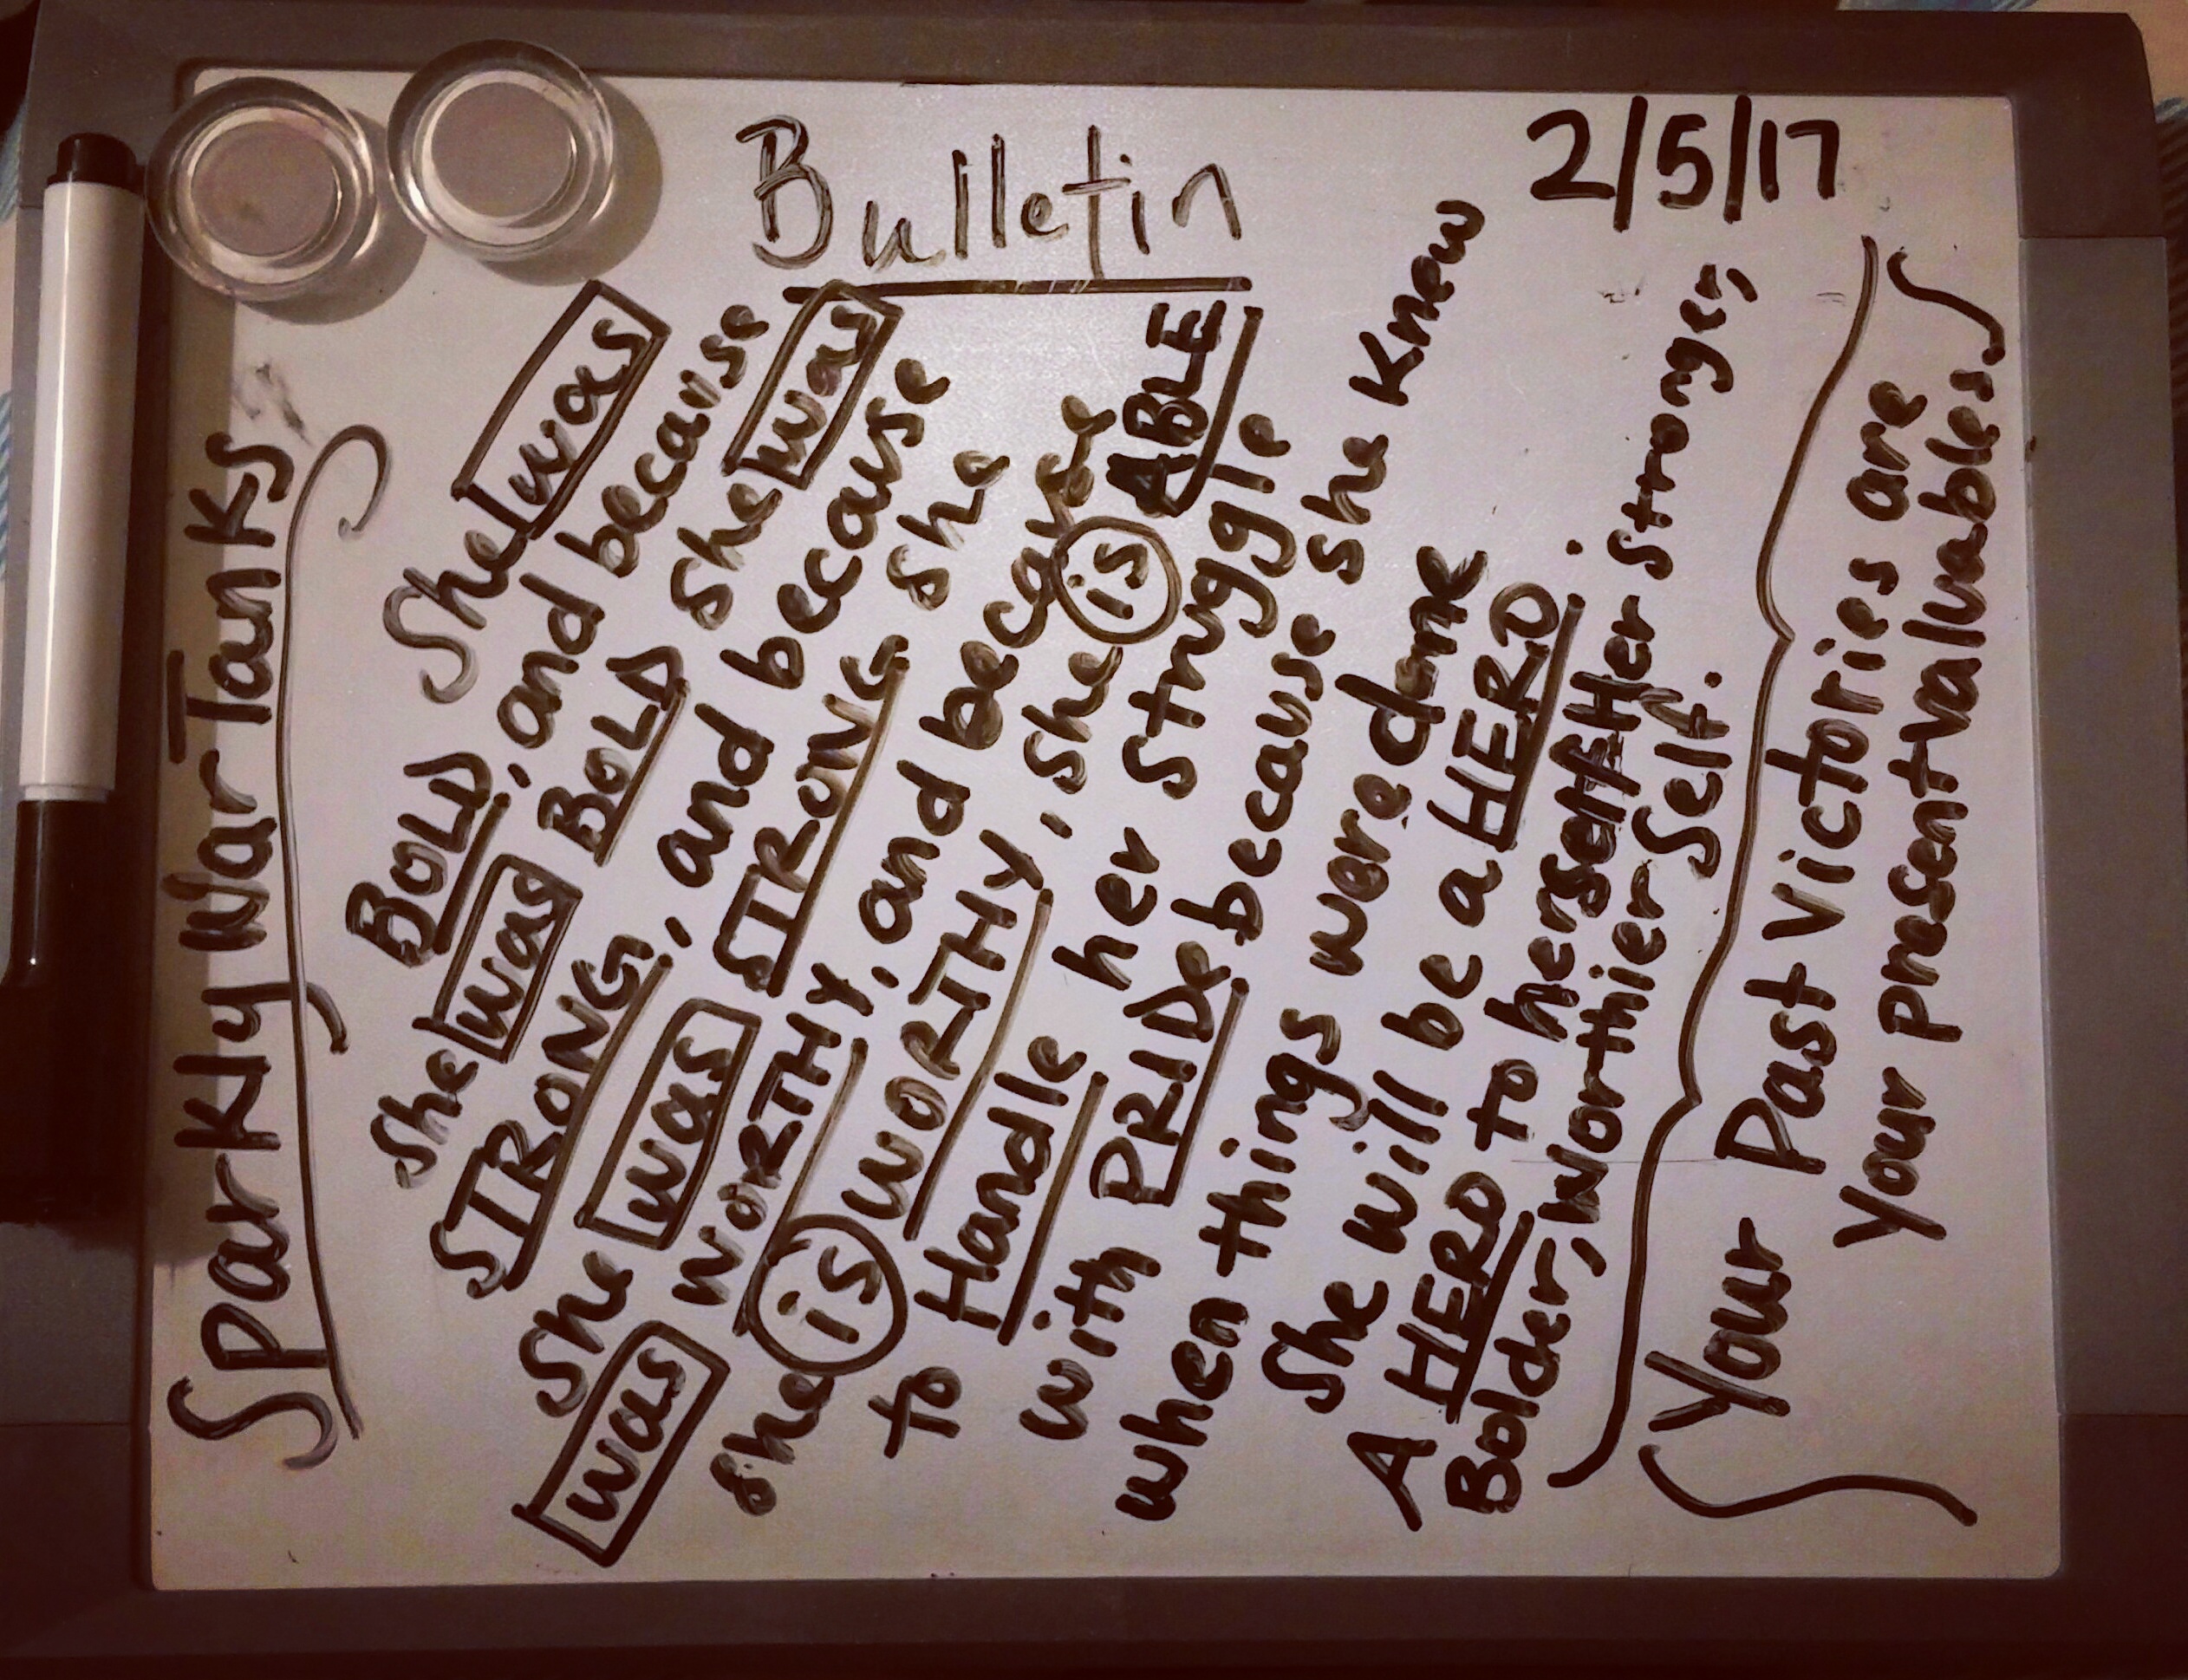 Bulletin
2/5/17
Sparkly War Tanks
She was
BOLD, and because
she was BOLD she was
STRONG, and because
she was STRONG she
was WORTHY, and because
she is WORTHY, she is ABLE
to Handle her struggle
with PRIDE because she knew
when things were done
she will be a HERO.
A HERO to herself Her Stronger,
Bolder, Worthier Self.
Your Past Victories are
your present valuables.